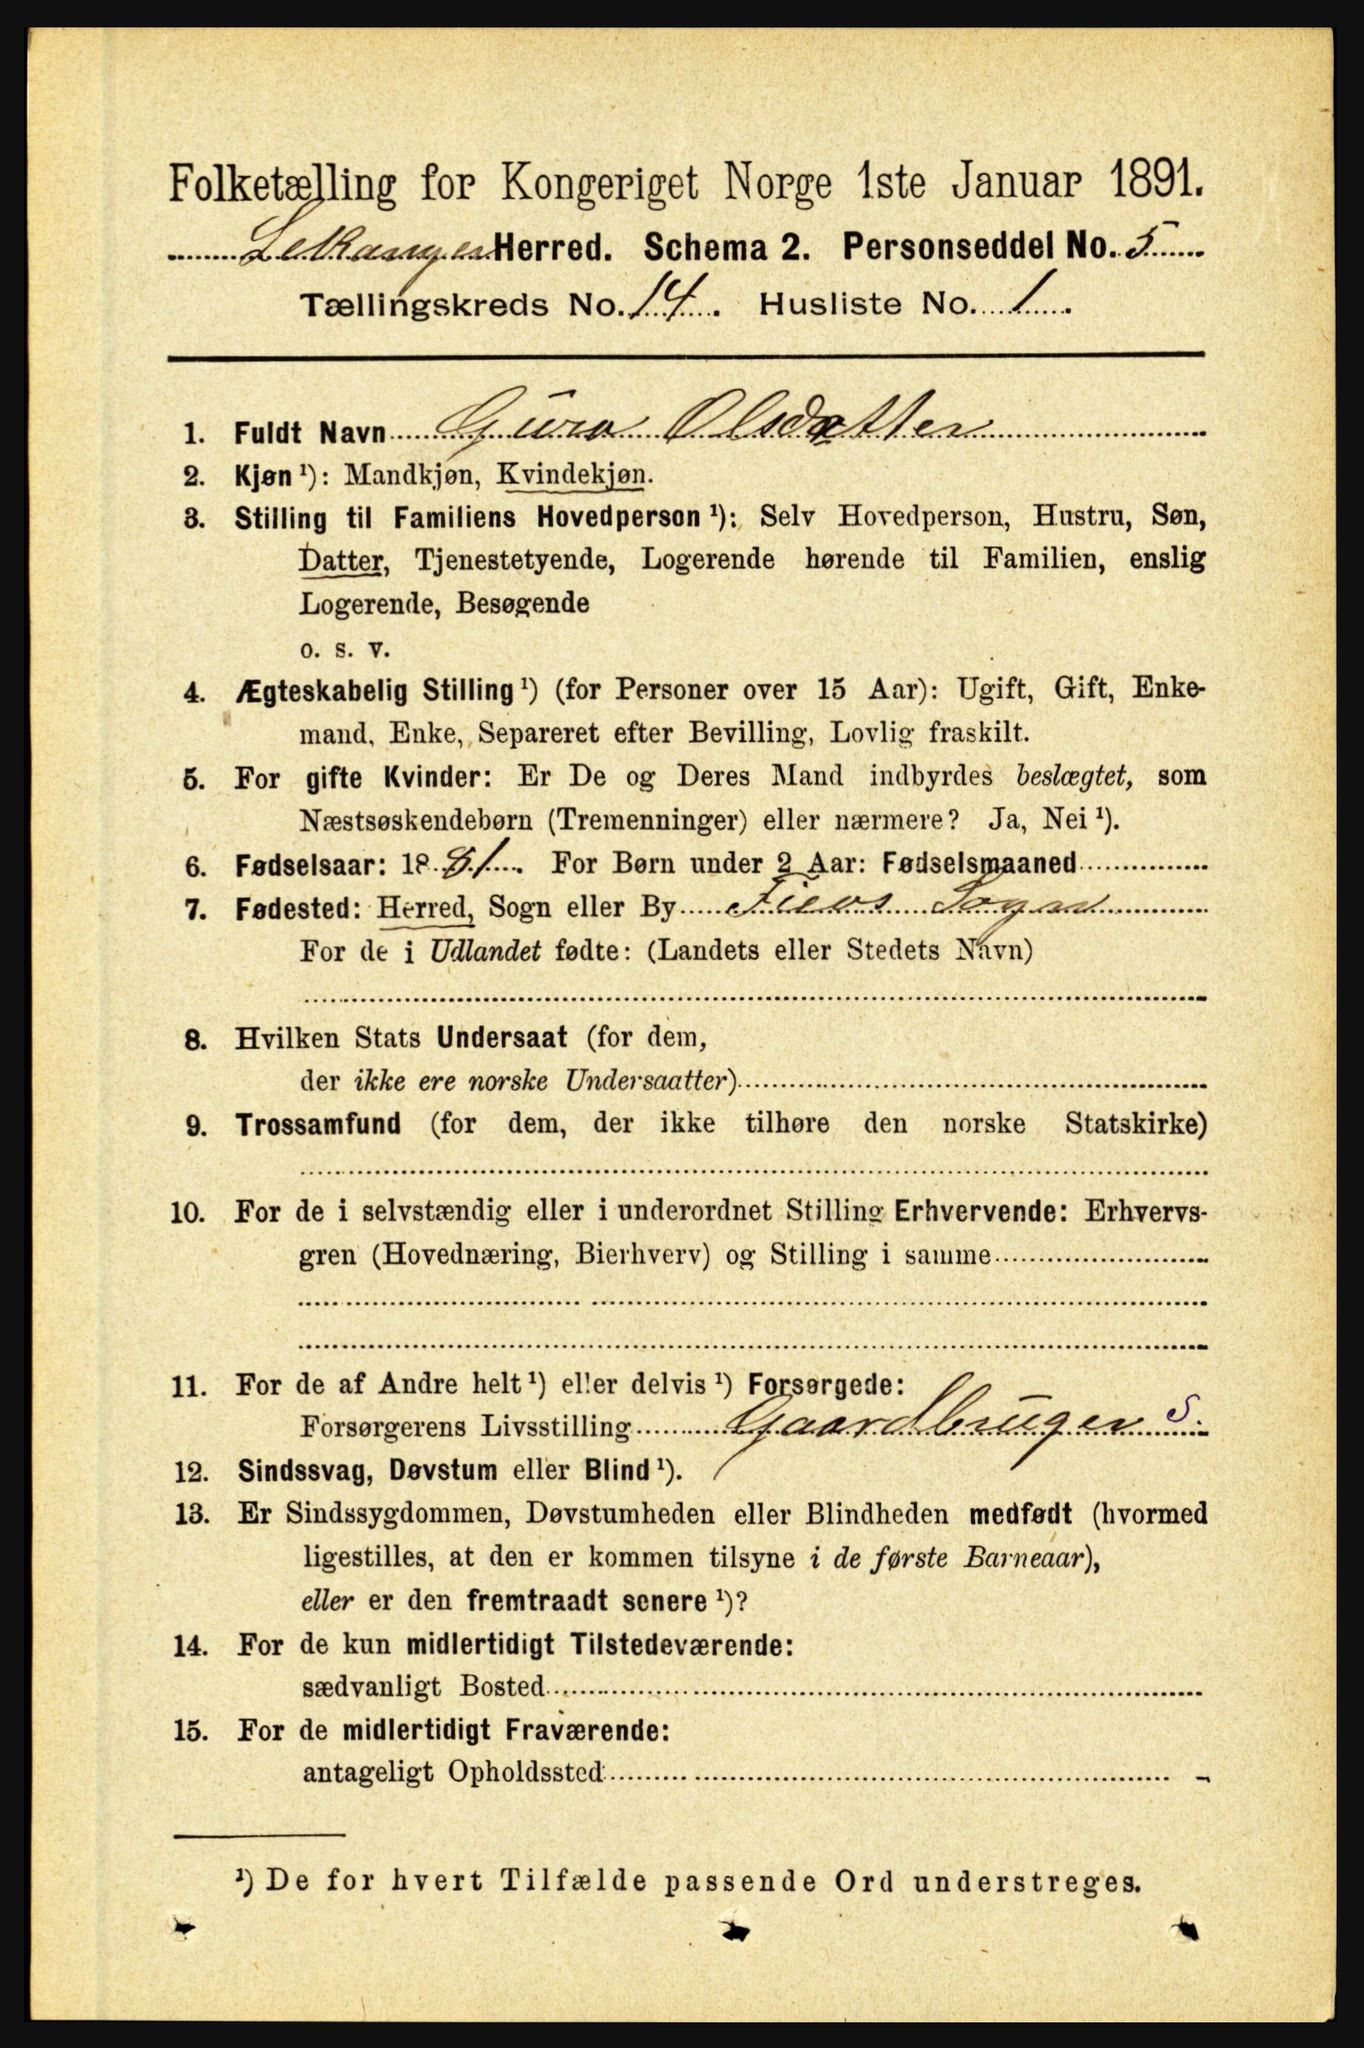 Folketælling for Kongeriget Norge 1ste Januar 1891.
Leikanger Herred. Schema 2. Personseddel No. 5
Tællingskreds No. 14. Husliste No. 1.
1. Fuldt Navn Guro Olsdatter
2. Kjøn ¹): Mandkjøn, Kvindekjøn.
3. Stilling til Familiens Hovedperson ¹): Selv Hovedperson, Hustru, Søn,
Datter, Tjenestetyende, Logerende hørende til Familien, enslig
Logerende, Besøgende
o. s. v.
4. Ægteskabelig Stilling ¹) (for Personer over 15 Aar): Ugift, Gift, Enke-
mand, Enke, Separeret efter Bevilling, Lovlig fraskilt.
5. For gifte Kvinder: Er De og Deres Mand indbyrdes beslægtet, som
Næstsøskendebørn (Tremenninger) eller nærmere? Ja, Nei ¹).
6. Fødselsaar: 1881. For Børn under 2 Aar: Fødselsmaaned
7. Fødested: Herred, Sogn eller By Sogn
For de i Udlandet fødte: (Landets eller Stedets Navn)
8. Hvilken Stats Undersaat (for dem,
der ikke ere norske Undersaatter)
9. Trossamfund (for dem, der ikke tilhøre den norske Statskirke)
10. For de i selvstændig eller i underordnet Stilling Erhvervende: Erhvervs-
gren (Hovednæring, Bierhverv) og Stilling i samme
11. For de af Andre helt ¹) eller delvis ¹) Forsørgede:
Forsørgerens Livsstilling Gaardbruger S.
12. Sindssvag, Døvstum eller Blind ¹).
13. Er Sindssygdommen, Døvstumheden eller Blindheden medfødt (hvormed
ligestilles, at den er kommen tilsyne i de første Barneaar),
eller er den fremtraadt senere ¹)?
14. For de kun midlertidigt Tilstedeværende:
sædvanligt Bosted
15. For de midlertidigt Fraværende:
antageligt Opholdssted
¹) De for hvert Tilfælde passende Ord understreges.